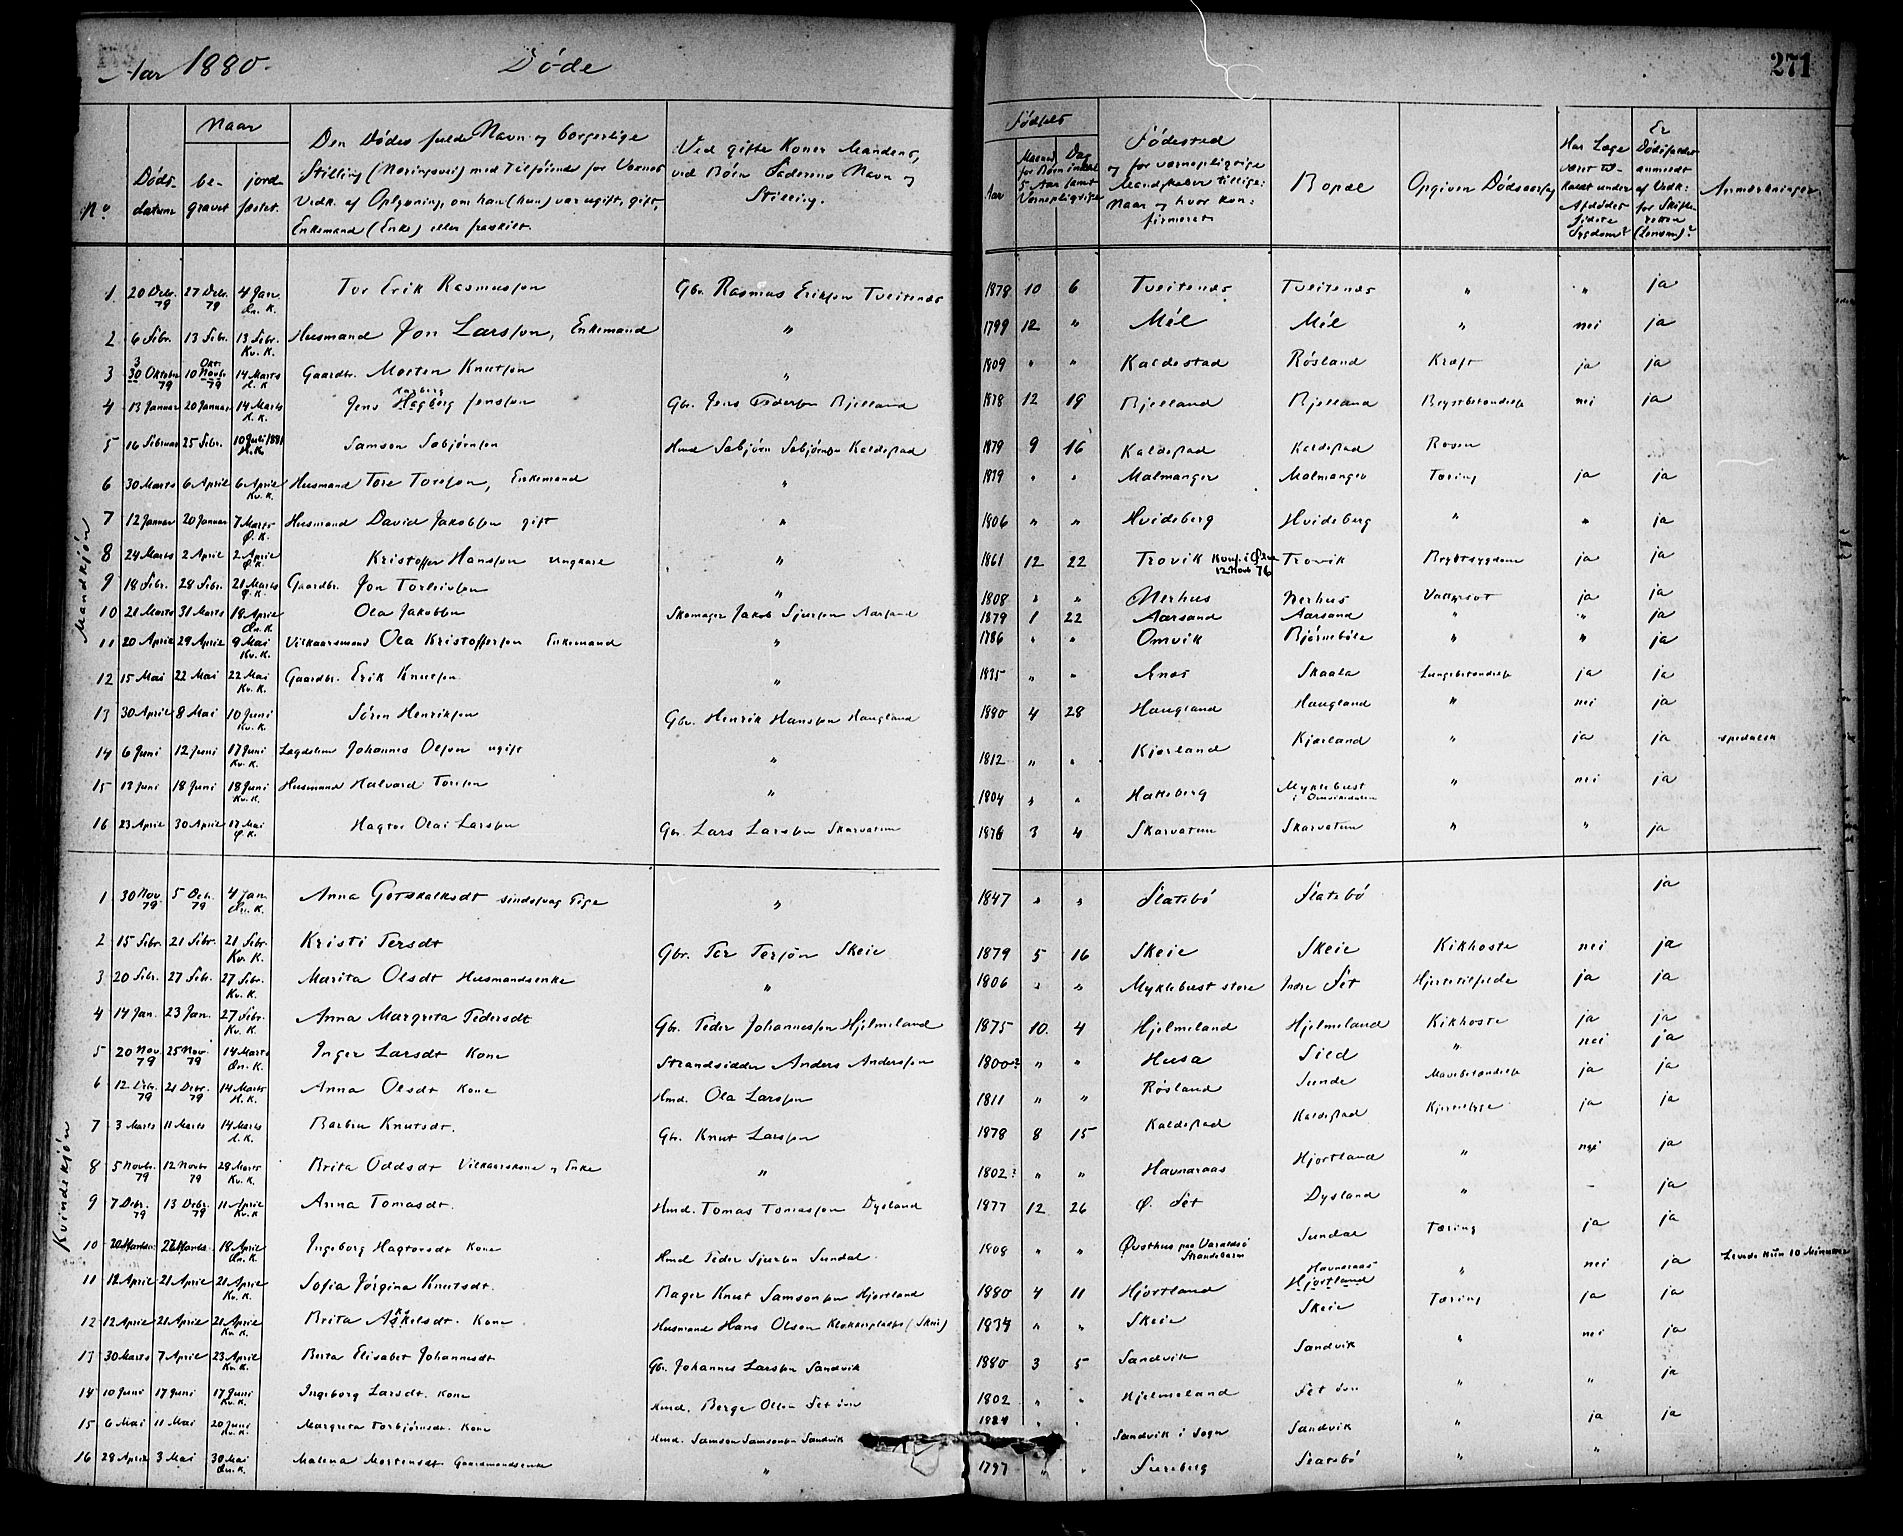 Aar 1880. Døde 271
No
Naar
Døds-datum
be-gravet
jord-fæstet.
Den Dødes fulde Navn og borgerlige
Stilling (Næringsvei) med Tilføiende for Voxnes
Vedk. af Oplysning, om han (hun) var ugift, gift,
Enkemand (Enke) eller fraskilt.
Ved gifte Koner Mandens,
ved Børn Faderens Navn og
Stilling.
Fødsels
Aar
Maaned for Børn indtil 5 Aar samt Værnepligtige
Dag
Fødested
og for værnepligtige
Mandskaber tillige:
Naar og hvor kon-
firmeret
Bopæl
Opgiven Dødsaarsag
Har Læge
været til-
kaldt under
Afdødes
sidste
Sygdom?
Er
Dødsfaldet
anmeldt
af Vedk:
for Skifte-
retten
(Lensm)?
Anmærkninger
Mandkjøn
1. 20 Decbr. 79 27 Decbr. 79 4 Jan. Ln. K. Tor Erik Rasmussøn Gbr. Rasmus Eriksøn Tveitenæs 1878 10 6 Tveitenæs Tveitenæs " " ja
2 6 Febr. 13 Febr. 13 Febr. Kv. K. Husmand Jon Larssøn, Enkemand " 1799 12 " Mél Mél " nei ja
3 3 30 Oktober 79 10 Okt. Novbr. 79 14 Marts Gaardbr. Morten Knutsøn " 1809 " " Kaldestad Røsland Kræft ja ja
4 13 Januar 20 Januar 14 Marts Jens Hagberg Jenssøn Gbr. Jens Pedersøn Bjelland 1878 12 19 Bjelland Bjelland Brystbetændelse nei ja
5 16 Februar 25 Febr. 10 Juli 1881 Samson Sæbjørnsøn Hmd Sæbjørn Sæbjørnsøn Kaldestad 1879 9 16 Kaldestad Kaldestad Rosen
6 30 Marts 6 April 6 April Kv. K. Husmand Tore Toresøn, Enkemand " " " Malmanger Malmanger Tæring ja ja
7 12 Januar 20 Januar 7 Marts Ø. K. Husmand David Jakobsøn gift " 1806 " " Hvideberg Hvideberg " " ja
8 24 Marts 2 April 2 April Ø. K. Kristoffer Hanssøn ungkarl " 1861 12 22 Trovik Konf. i Ølve 12 Novb 76 Trovik Brystsygdom ja ja
9 18 Febr. 28 Febr. 21 Marts Ø. K. Gaardbr. Jon Torleivsøn " 1808 " " Nerhus Nerhus Vattersot ja ja
10 21 Marts 31 Marts 18 April Ln. K. Ola Jakobsøn Skomager Jakob Sjursøn Aarsand 1879 1 22 Aarsand Aarsand " " ja
11 20 April 29 April 9 Mai Kv. K. Vilkaarsmand Ola Kristoffersøn Enkemand " 1786 " " Omvik Bjørnebøle " " ja
12 15 Mai 22 Mai 22 Mai Kv. K. Gaardbr. Erik Knutsøn " " " Ænes Skaala Lungebetændelse ja ja
13 30 April 8 Mai 10 Juni Kv. K. Søren Henriksøn Gbr. Henrik Hanssøn Haugland 1880 4 28 Haugland Haugland " nei ja
14 6 Juni 12 Juni 17 Juni Kv. K. Lægdslem Johannes Olsøn ugift " 1812 " " Kjærland Kjærland " ja ja spedalsk
15 13 Juni 18 Juni 18 Juni Kv. K. Husmand Halvard Toresøn " 1804 " " Hatteberg Myklebust i Omvikdalen " nei ja
16 23 April 30 April 17 Mai Ø. K. Hagtor Olai Larssøn Gbr. Lars Larssøn Skarvatun 1876 3 4 Skarvatun Skarvatun " " ja
Kvindekjøn
1 30 Nov. 79 5 Dcb. 79 4 Jan. Ln. K. Anna Gotskalksdt sindssvag Pige " 1847 " " Flatebø Flatebø ja
2 15 Febr. 21 Febr. 21 Febr. Kv. K. Kristi Persdt Gbr. Per Persøn Skeie 1879 5 16 Skeie Skeie Kikhoste nei ja
3 20 Febr. 27 Febr. 27 Febr. Kv. K. Marita Olsdt Husmandsenke " 1806 " " Myklebust store Indre Set Hjertetilfælde ja ja
4 14 Jan. 23 Jan. 27 Febr. Kv. K. Anna Margreta Pedersdt Gbr. Peder Johannessøn Hjelmeland 1875 10. 4 Hjelmeland Hjelmeland Kikhoste ja ja
5 20 Nov. 79 25 Nov. 79 14 Marts Ln. K. Inger Larsdt Kone Strandsidder Anders Anderssøn 1800? " " Husa Sild " nei ja
6 12 Dcbr. 79 21 Dcbr. 79 14 Marts H. K. Anna Olsdt Kone Hmd. Ola Larssøn 1811 " " Røsland Sunde Mavebetændelse ja ja
7 3 Marts 11 Marts 14 Marts Barbru Knutsdt. Gbr. Knut Larssøn 1878 8 15 Kaldestad Kaldestad Kjertelsyge ja ja
8 5 Novbr. 79 12 Novbr 79 28 Marts Kv. K. Brita Oddsdt Vilkaarskone og Enke " 1802? " " Havnaraas Hjortland " nei ja
9 7 Dcbr. 79 13 Dcbr. 79 11 April Kv. K Anna Tomasdt. Hmd. Tomas Tomassøn Dysland 1877 12 26 Ø. Set Dysland " - ja
10 20 Marts 27 Marts 18 April Ln. K. Ingeborg Hagtorsdt Kone Hmd Peder Sjursøn Sundal 1808 " " Øvsthus paa Varaldsø Strandebarm Sundal Tæring ja ja
11 12 April 21 April 21 April Kv. K. Sofia Jørgina Knutsdt. Bager Knut Samsonsøn Hjortland 1880 4 11 Hjortland Havnaraas Hjortland " nei ja Levede kun 10 Minutter
12 12 April 21 April 21 April Kv. K. Brita Askelsdt. Kone Husmand Hans Olsøn Klokkerplads (Skeie) 1834 " " Skeie Skeie Tæring ja ja
13 30 Marts 7 April 23 April Kv. K. Berta Elisabet Johannesdt Gbr. Johannes Larssøn Sandvik 1880 3 5 Sandvik Sandvik " nei ja
14 10 Juni 17 Juni 17 Juni Kv. K. Ingeborg Larsdt. Kone Hmd. Berge Olsøn Set 1802 " " Hjelmeland Set " " ja
15 6 Mai 11 Mai 20 Juni Kv. K. Margreta Torbjørnsdt. Kone Hmd. Samson Samsonsøn Sandvik 1824 " " Sandvik i Sogn Sandvik " ja ja
16 28 April 3 Mai 30 Mai Ln. K. Malena Mortensdt Gaardmandsenke " 1797 " " Fureberg Flatebø " "